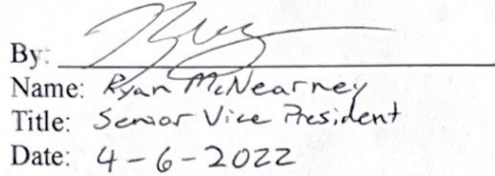 By:
Name: Ryan McNearney
Title: Senior Vice President
Date: 4-6-2022